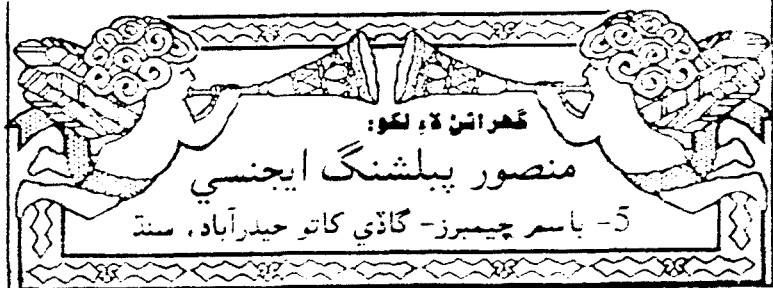 گهرائڻ لاءِ لکو:
منصور پبلشنگ ايجنسي
5- باسم چيمبرز- گاڏي کاتو حيدرآباد، سنڌ